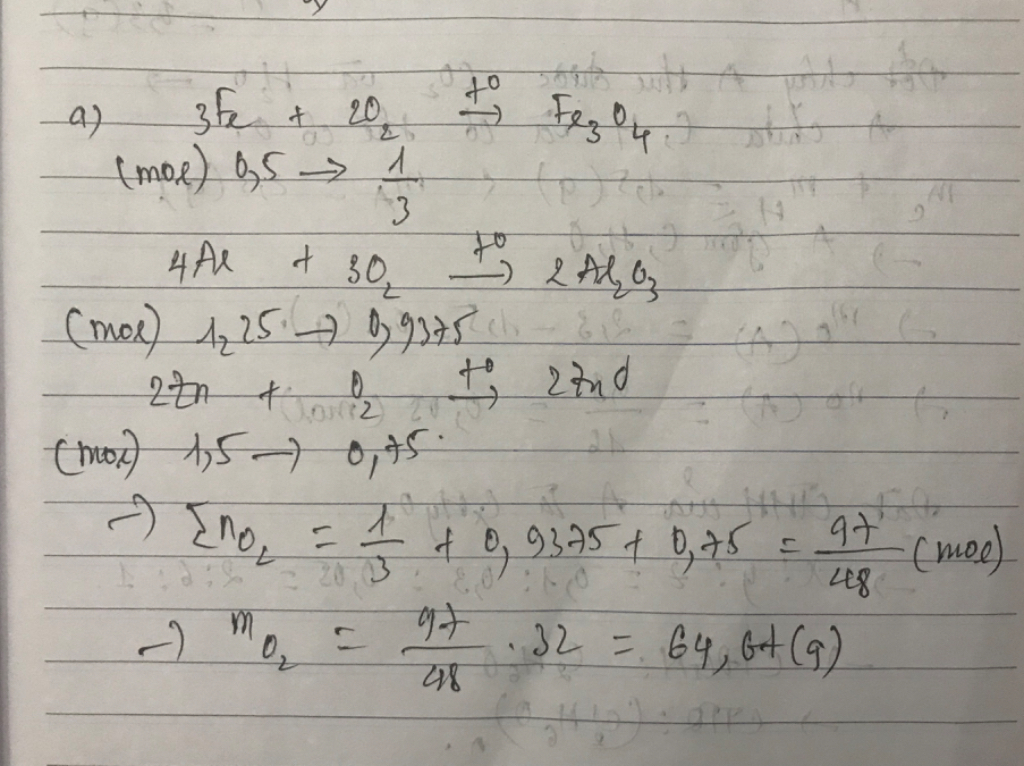 a) 3Fe + 2O₂ →(t⁰) Fe₃O₄
(mol) 0,5 → 1/3
4Al + 3O₂ →(t⁰) 2Al₂O₃
(mol) 1,25 → 0,9375
2Zn + O₂ →(t⁰) 2ZnO
(mol) 1,5 → 0,75
→ Σn O₂ = 1/3 + 0,9375 + 0,75 = 97/48 (mol)
→ m O₂ = 97/48 . 32 = 64,67 (g)